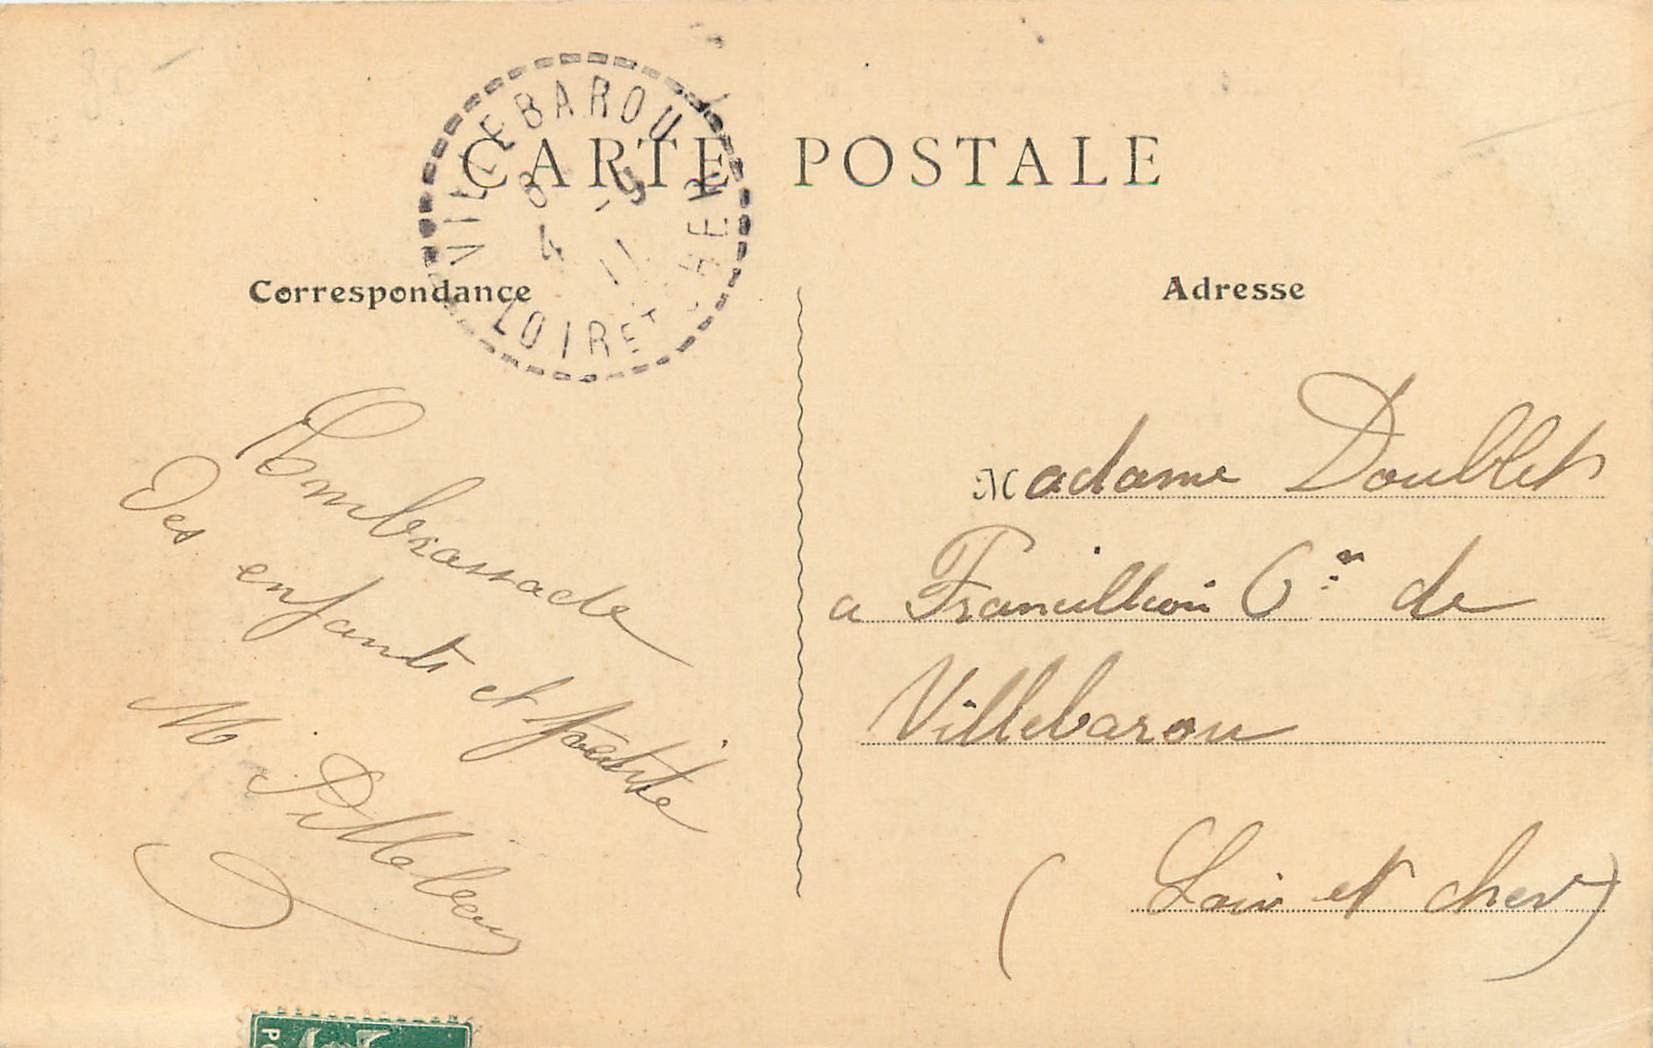 CARTE POSTALE
VILLEBAROU
8
4 -9
11
LOIR ET-CHER
Correspondance
Adresse
Embrassade
Des enfants et petite
M
Madame Doublet
a Francillon Cne de
Villebarou
(Loir et cher)
PO